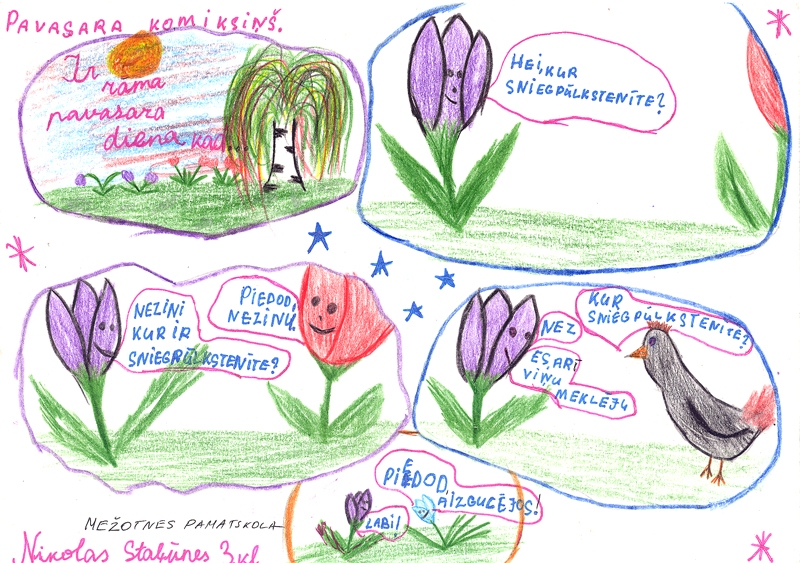 PAVASARA KOMIKSIŅŠ.
Ir
rāma
pavasara
diena kad...
HEI, KUR
SNIEGPŪLKSTENĪTE?
NEZINI
KUR IR
SNIEGPŪLKSTENĪTE?
PIEDOD,
NEZINU.
KUR
SNIEGPŪLKSTENĪTE?
NEZ
ES, ARĪ
VIŅU
MEKLĒJU
PIEDOD,
AIZGULĒJOS!
LABI!
MEŽOTNES PAMATSKOLA
Nikolas Stabūnes 3.kl.